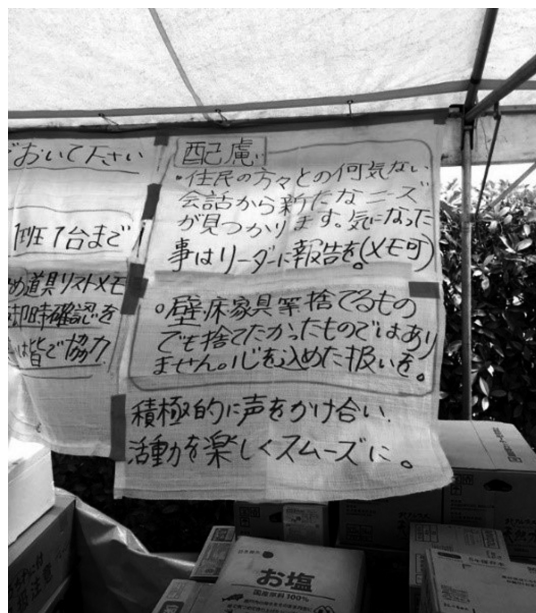 おいて下さい
1班1台まで
道具リストメモ
却時確認を
は皆で協力
配慮
・住民の方々との何気ない
会話から新たなニーズ
が見つかります。気になった
事はリーダーに報告を。(メモ可)
。壁床家具等捨てるもの
でも捨てたかったものではあり
ません。心を込めた扱いを。
積極的に声をかけ合い、
活動を楽しくスムーズに。
お塩
国産原料100%